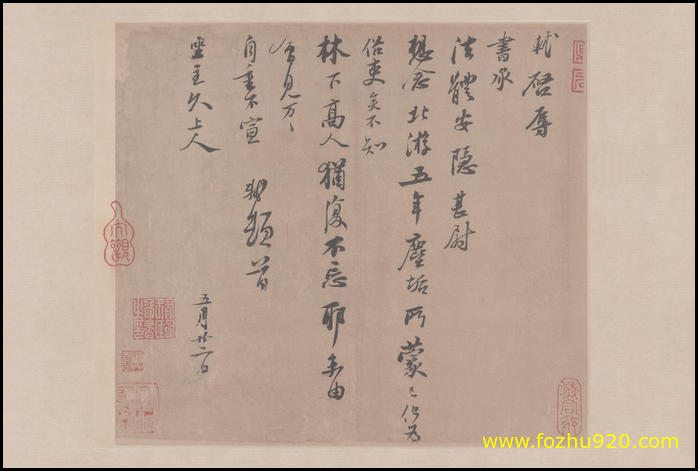 軾啓辱
書承
法體安隱甚尉
想念北游五年塵垢所蒙已化爲
俗吏矣不知
林下高人猶復不忘耶未由
會見万万
自重不宣 軾頓首
坐主久上人
五月廿二日
www.fozhu920.com